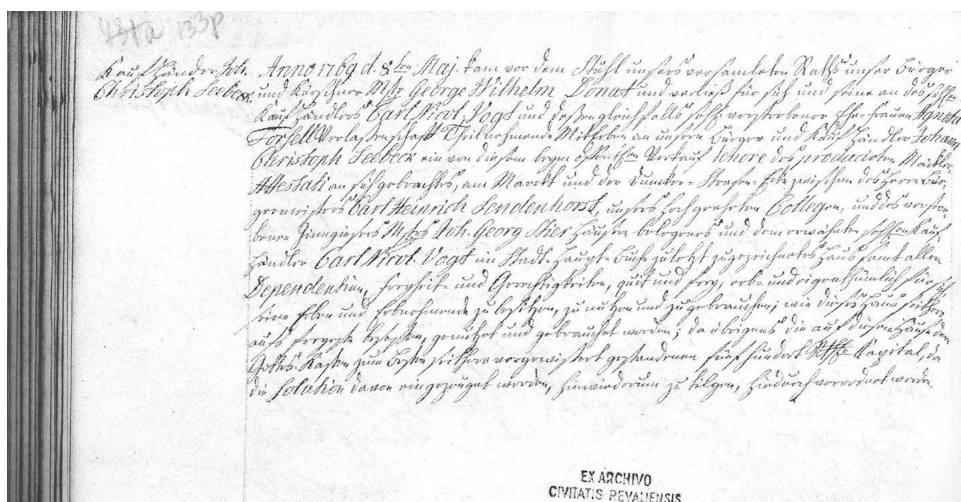 43ta 133p
Kaufhändler Joh.
Christoph Seebeck
Anno 1769 d. 8ten Maj. kam vor dem Stuhl unsers versamleten Raths unser Bürger
und Kürschner Mstr George Wilhelm Donat und verließ für sich und seine an des
Kaufhändlers Carl Nicol. Vogt und dessen gleichfalls verstorbenen Ehe-Frauen Agneta
Forsell Verlassenschaft Theil nehmende Miterben an unsern Bürger und Kauf Händler Johann
Christoph Seebeck ein von diesem Verkauf tenore des producirten Mäckler
Attestati an sich gebrachtes, am Marckt und der Duncker-Straßen-Ecke zwischen des Herrn Bür-
germeisters Carl Heinrich Sendenhorst, unsers hochgeehrten Collegen, und des verstor-
benen Zinngießers Mstrs Joh. Georg Stier Häusern belegenes und dem erwähnten Kauf
Händler Carl Nicol. Vogt im Stadt-Haupt-Buche zuletzt zugezeichnetes Haus samt allen
Dependentien, Freyheit- und Gerechtigkeiten, quit und frey, erb- und eigenthümlich für sich
seine Erben und Erbnehmende zu besitzen, zu nutzen und zu gebrauchen; wie dieses Haus seither
aufs freyeste besessen, genutzet und gebrauchet worden; da übrigens die auf diesem Hause dem
Gottes-Kasten zum Besten seither vergewissert gestandenen fünf hundert Kapital, da
die Solution davon eingezeuget worden, hinwiederum zu tilgen, hiedurch verordnet worden.
EX ARCHIVO
CIVITATIS REVALIENSIS